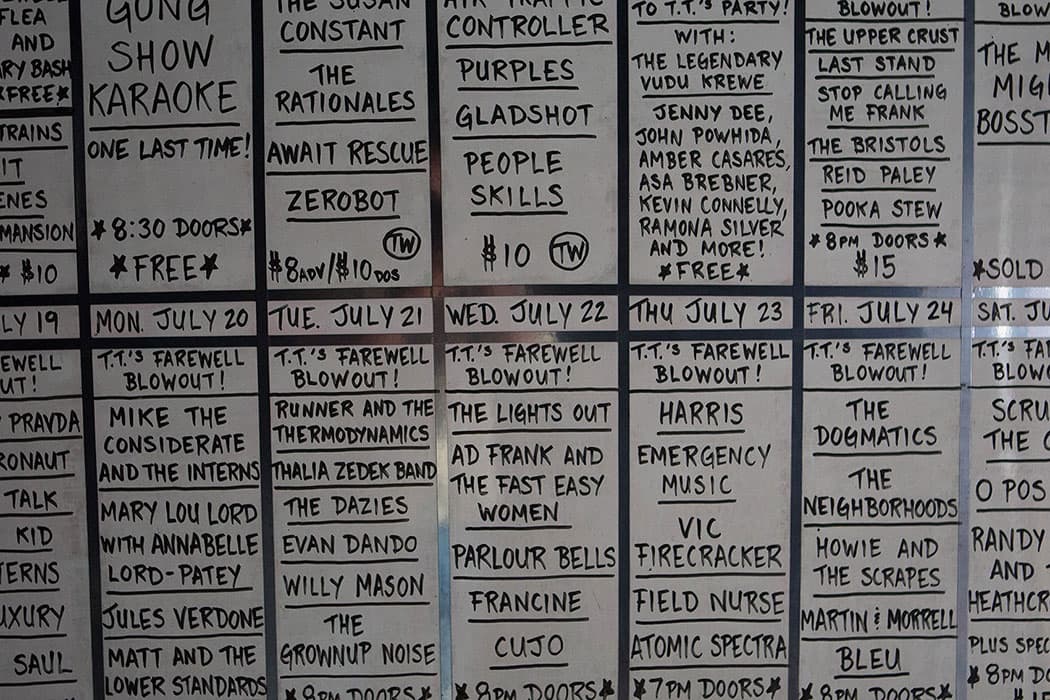 FLEA
AND
BASH
*FREE*
TRAINS
IT
MANSION
* $10
GONG
SHOW
KARAOKE
ONE LAST TIME!
*8:30 DOORS*
*FREE*
THE SUSAN
CONSTANT
THE
RATIONALES
AWAIT RESCUE
ZEROBOT
TW
$8ADV/$10DOS
AIR TRAFFIC
CONTROLLER
PURPLES
GLADSHOT
PEOPLE
SKILLS
$10 TW
TO T.T.'S PARTY!
WITH:
THE LEGENDARY
VUDU KREWE
JENNY DEE,
JOHN POWHIDA,
AMBER CASARES,
ASA BREBNER,
KEVIN CONNELLY,
RAMONA SILVER
AND MORE!
*FREE*
BLOWOUT!
THE UPPER CRUST
LAST STAND
STOP CALLING
ME FRANK
THE BRISTOLS
REID PALEY
POOKA STEW
*8PM DOORS*
$15
BLOW
THE M
MIG
BOSST
*SOLD
LY 19
EWELL
UT!
PRAVDA
RONAUT
TALK
KID
TERNS
UXURY
SAUL
MON. JULY 20
T.T.'S FAREWELL
BLOWOUT!
MIKE THE
CONSIDERATE
AND THE INTERNS
MARY LOU LORD
WITH ANNABELLE
LORD-PATEY
JULES VERDONE
MATT AND THE
LOWER STANDARDS
TUE. JULY 21
T.T.'S FAREWELL
BLOWOUT!
RUNNER AND THE
THERMODYNAMICS
THALIA ZEDEK BAND
THE DAZIES
EVAN DANDO
WILLY MASON
THE
GROWNUP NOISE
*8PM DOORS*
WED. JULY 22
T.T.'S FAREWELL
BLOWOUT!
THE LIGHTS OUT
AD FRANK AND
THE FAST EASY
WOMEN
PARLOUR BELLS
FRANCINE
CUJO
*8PM DOORS*
THU JULY 23
T.T.'S FAREWELL
BLOWOUT!
HARRIS
EMERGENCY
MUSIC
VIC
FIRECRACKER
FIELD NURSE
ATOMIC SPECTRA
*7PM DOORS*
FRI. JULY 24
T.T.'S FAREWELL
BLOWOUT!
THE
DOGMATICS
THE
NEIGHBORHOODS
HOWIE AND
THE SCRAPES
MARTIN & MORRELL
BLEU
*8PM DOORS*
SAT. JU
T.T.'S FA
BLOWO
SCRU
THE C
O POS
RANDY
AND
HEATHCR
PLUS SPEC
*8PM DO